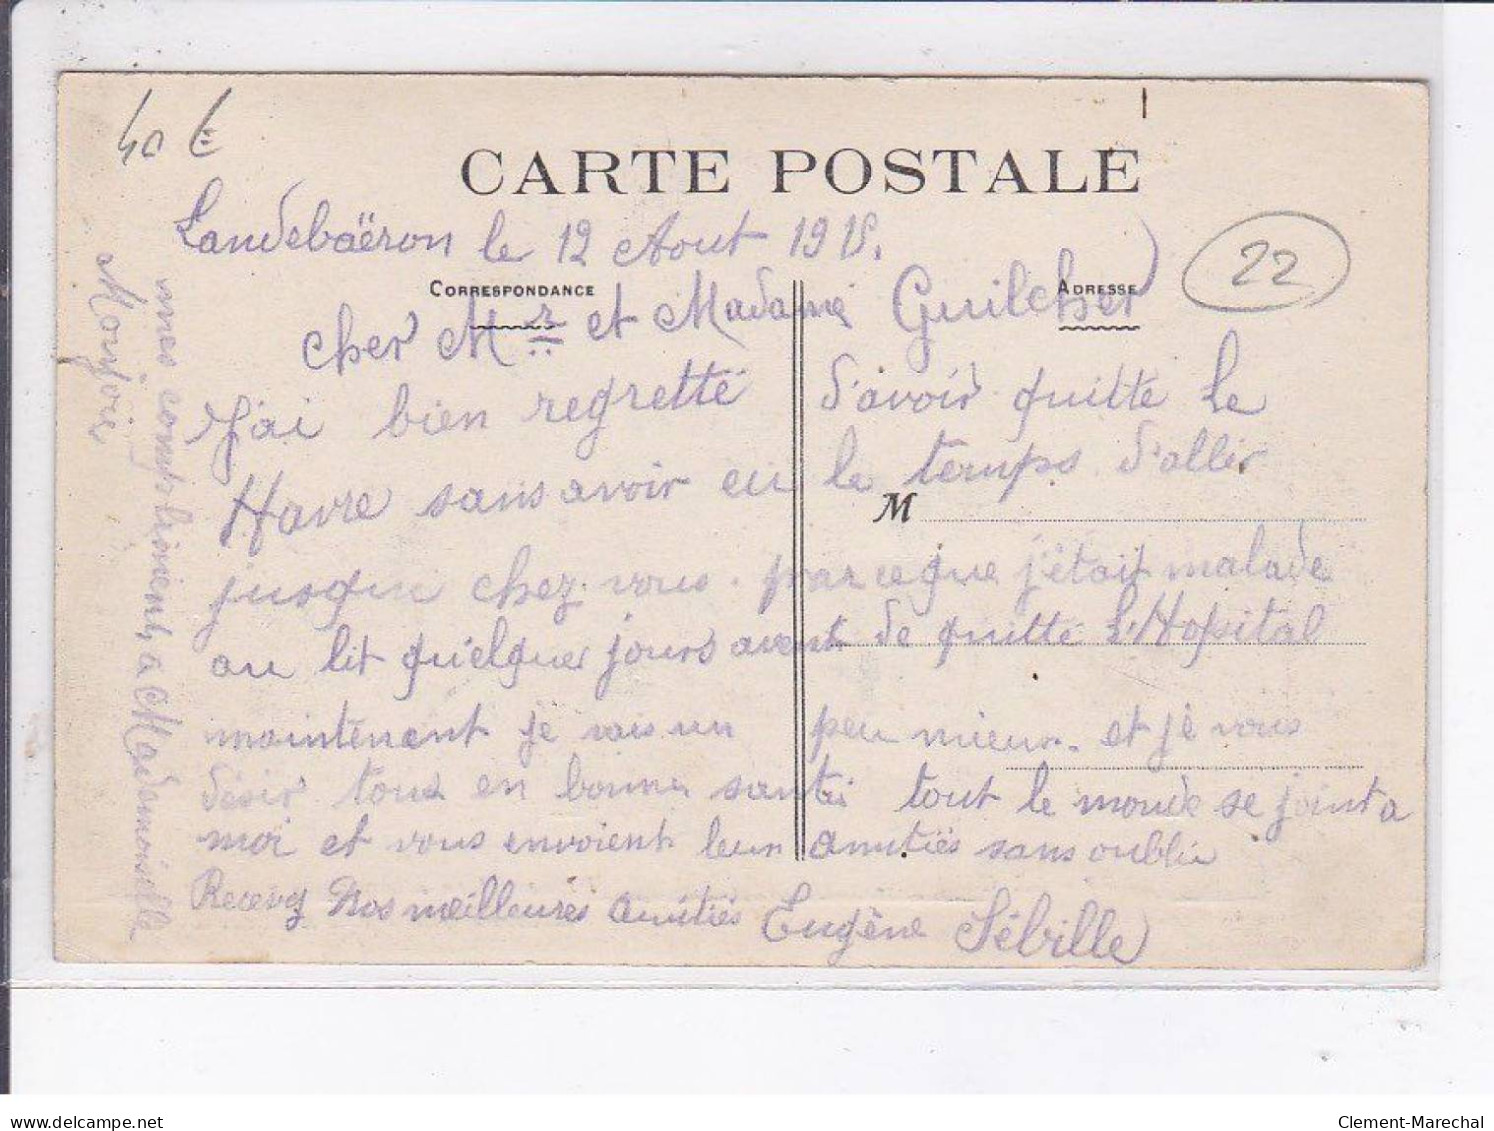 40 €
CARTE POSTALE
Landebaëron le 12 Aout 1918.
22
CORRESPONDANCE
ADRESSE
cher Mr et Madame Guilcher
J'ai bien regretté d'avoir quitte Le
Havre sans avoir eu le temps d'aller
M
jusque chez vous. parceque j'était malade
au lit quelques jours avent de quitte L'Hopital
maintenent je vais un peu mieux. et je vous
désir tous en bonne santéi tout le monde se joint a
moi et vous envoient leur amitiés sans oublie
Recevez Nos meilleures amitiés Eugène Sébille
mes compliments a Mademoiselle
delcampe.net
Clement-Marechal